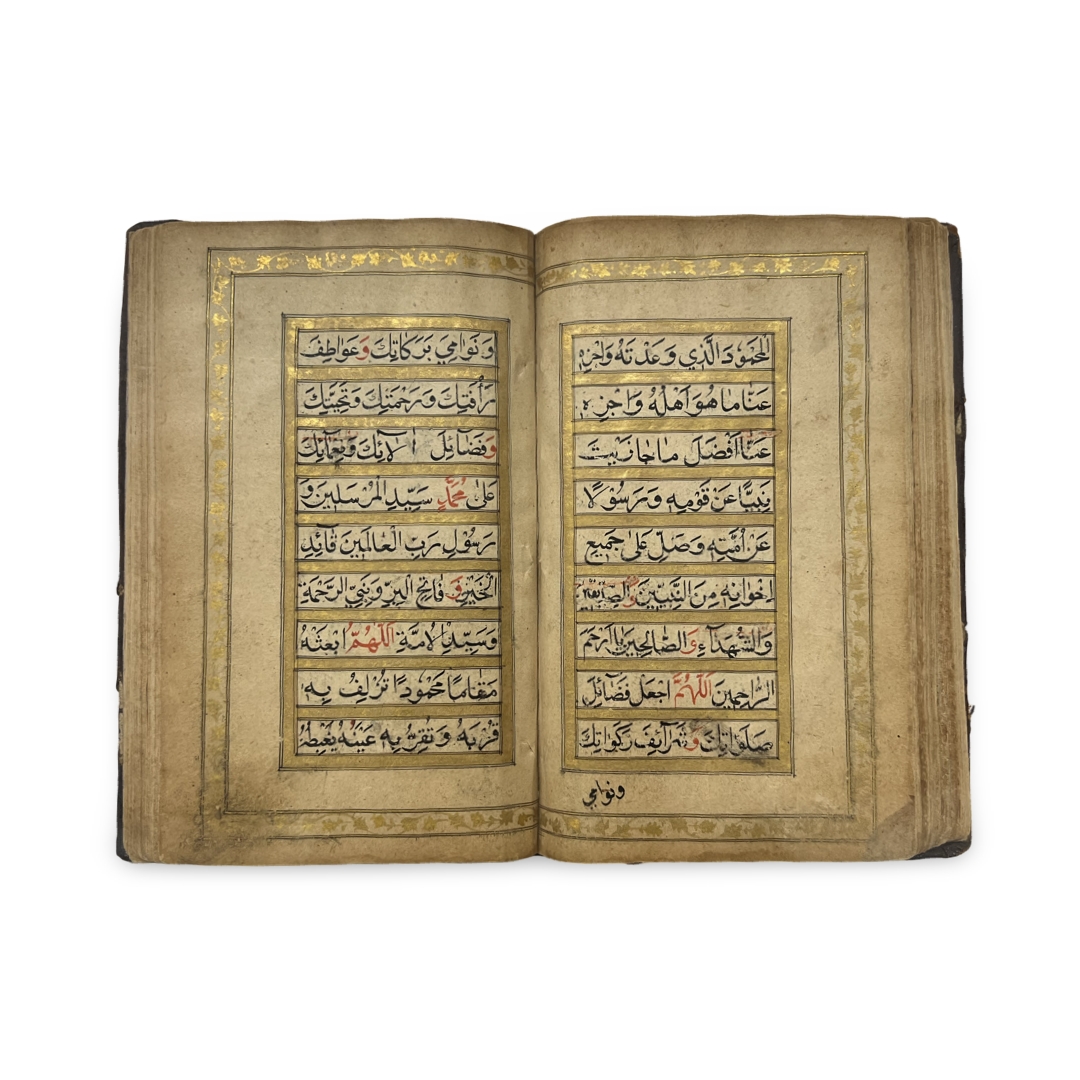 المَحْمُودَ الَّذِي وَعَدْتَهُ وَاجْزِهِ
عَنَّا مَا هُوَ اَهْلُهُ وَاجْزِهِ
عَنَّا اَفْضَلَ مَا جَازَيْتَ
نَبِيًّا عَنْ قَوْمِهِ وَرَسُوْلًا
عَنْ اُمَّتِهِ وَصَلِّ عَلٰى جَمِيْعِ
اِخْوَانِهِ مِنَ النَّبِيِّيْنَ وَالصِّدِّيْقِيْنَ
وَالشُّهَدَآءِ وَالصَّالِحِيْنَ يَا اَرْحَمَ
الرَّاحِمِيْنَ اَللّٰهُمَّ اجْعَلْ فَضَآئِلَ
صَلَوَاتِكَ وَشَرَآئِفَ زَكَوَاتِكَ
ونوامي
وَنَوَامِيَ بَرَكَاتِكَ وَعَوَاطِفَ
رَأْفَتِكَ وَرَحْمَتِكَ وَتَحِيَّتِكَ
وَفَضَآئِلَ اٰلَائِكَ وَنِعْمَائِكَ
عَلٰى مُحَمَّدٍ سَيِّدِ الْمُرْسَلِيْنَ وَ
رَسُوْلِ رَبِّ الْعَالَمِيْنَ قَآئِدِ
الْخَيْرِ وَ فَاتِحِ الْبِرِّ وَنَبِيِّ الرَّحْمَةِ
وَسَيِّدِ الْاُمَّةِ اَللّٰهُمَّ ابْعَثْهُ
مَقَامًا مَحْمُوْدًا تُزْلِفُ بِهِ
قُرْبَهُ وَتُقِرُّ بِهِ عَيْنَهُ يَغْبِطُهُ